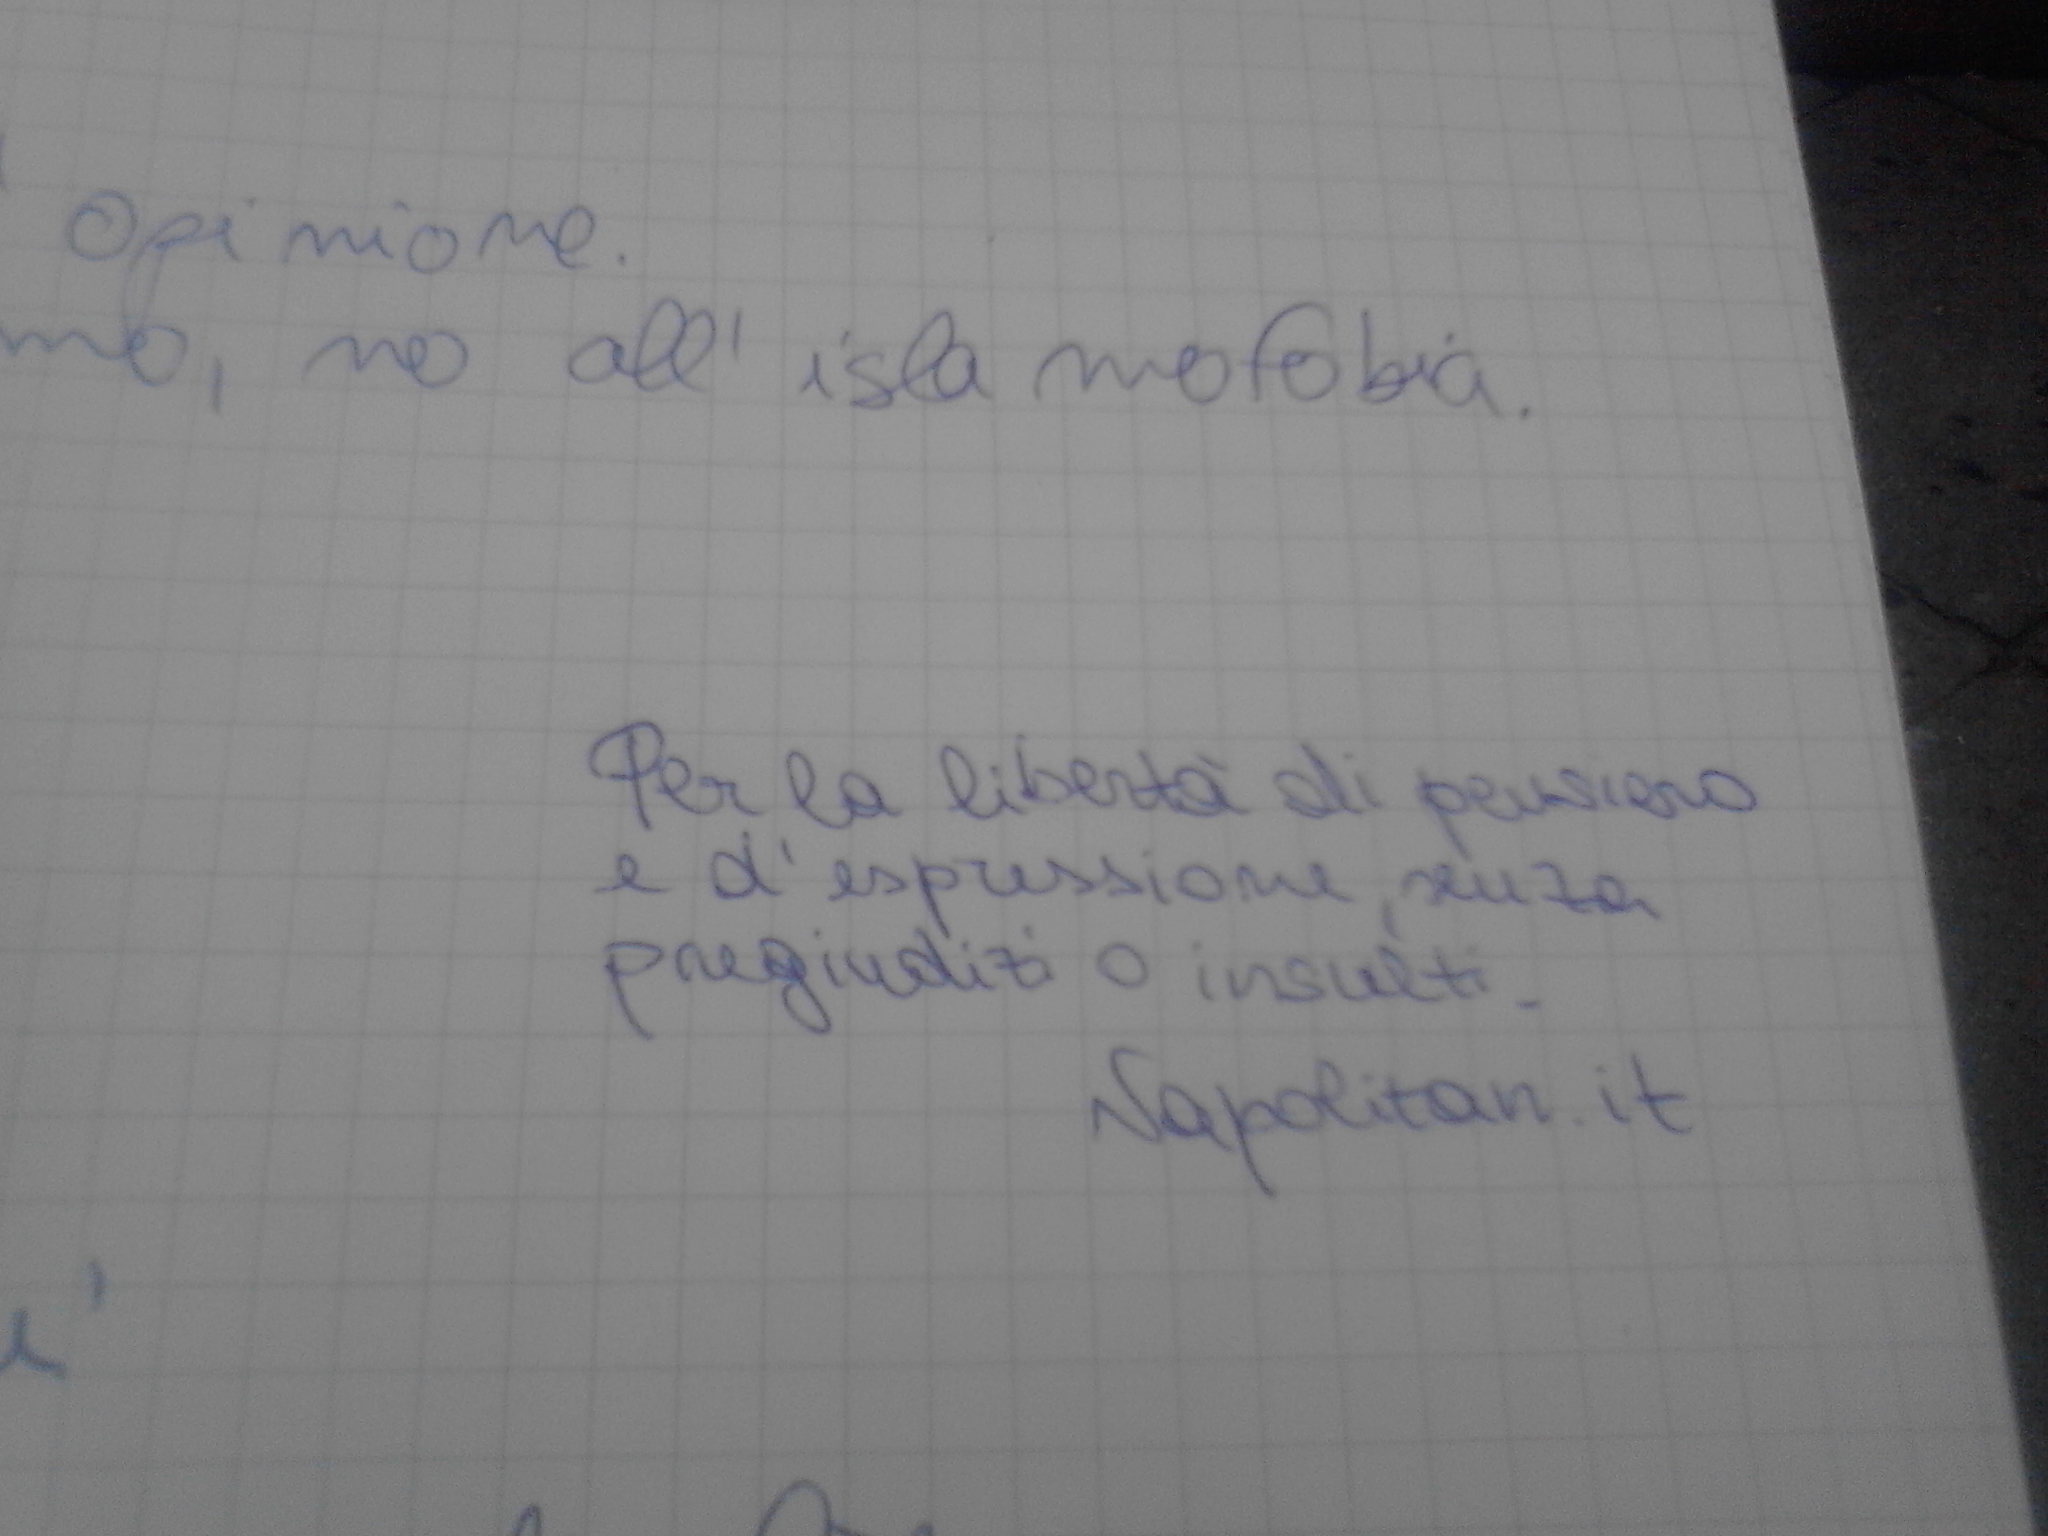 opinione.
no all' islamofobia.
Per la libertà di pensiero
e d'espressione, senza
pregiudizi o insulti.
Napolitan.it